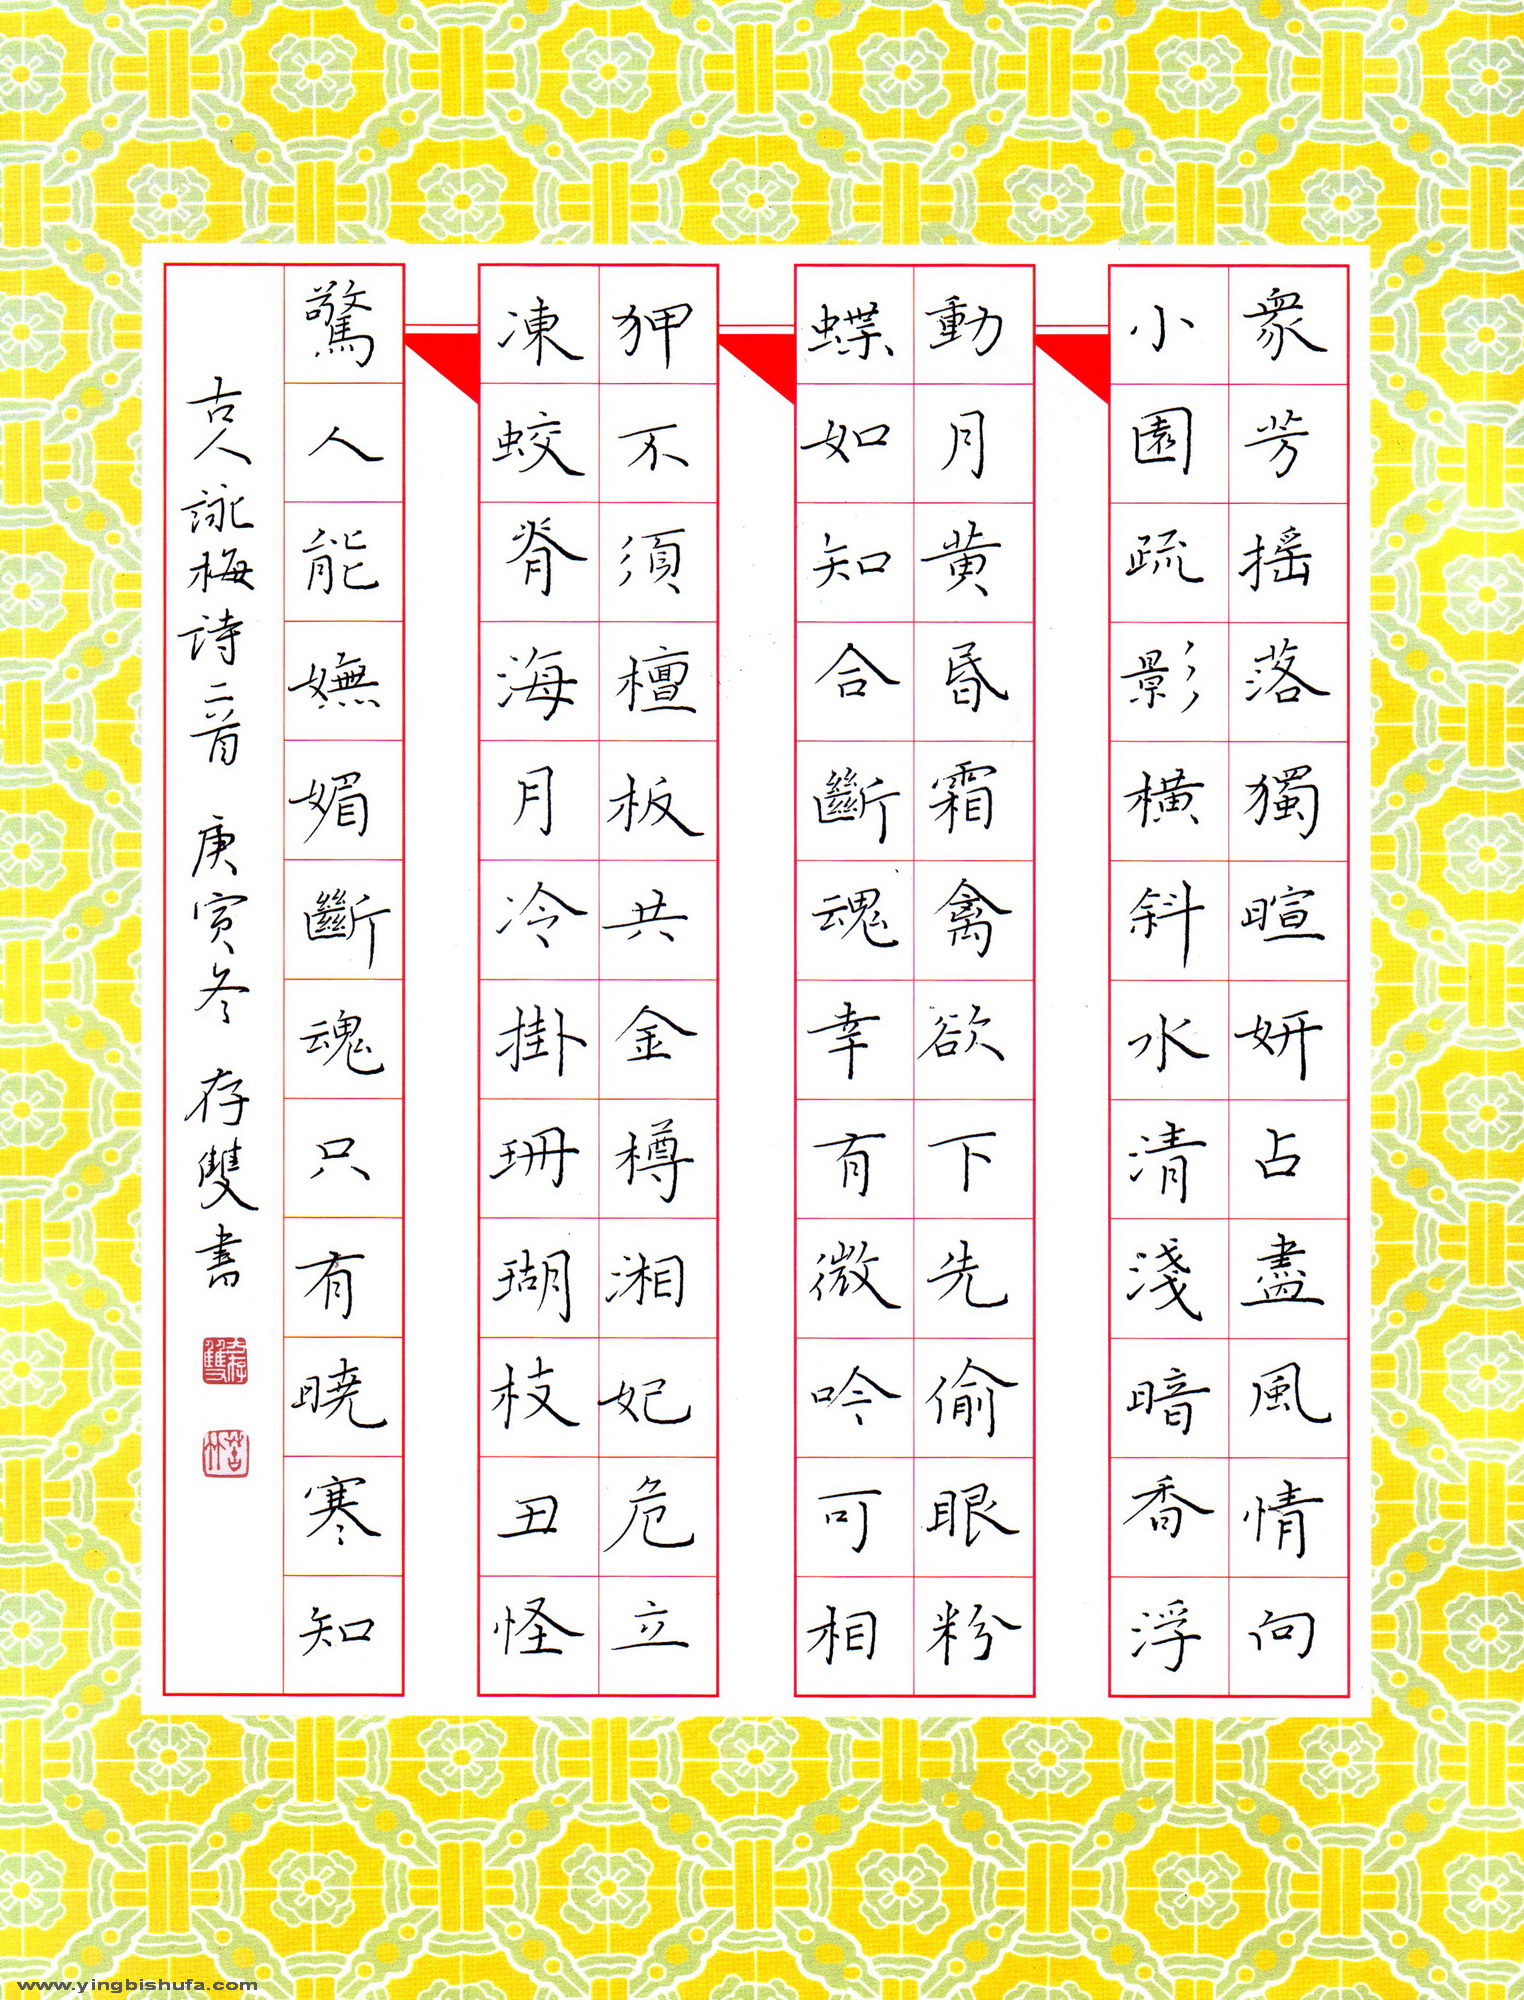 衆芳摇落獨暄妍占盡風情向
小園疏影橫斜水清淺暗香浮
動月黄昏霜禽欲下先偷眼粉
蝶如知合斷魂幸有微吟可相
狎不須檀板共金樽湘妃危立
凍蛟脊海月冷掛珊瑚枝丑怪
驚人能嫵媚斷魂只有曉寒知
古人詠梅詩二首 庚寅冬 存雙書
www.yingbishufa.com